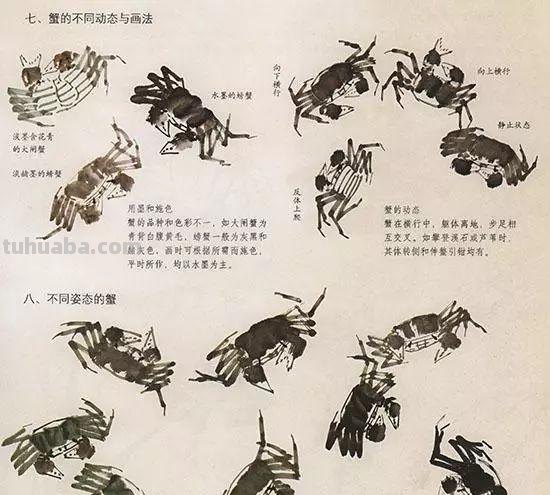 七、蟹的不同动态与画法
向下横行
向上横行
水墨的螃蟹
淡墨含花青
的大闸蟹
静止状态
淡赭墨的螃蟹
反体上爬
用墨和施色
蟹的品种和色彩不一，如大闸蟹为
青背白腹黄毛，螃蟹一般为灰黑和
赭灰色，画时可根据所需而施色，
平时所作，均以水墨为主。
蟹的动态
蟹在横行中，躯体离地，步足相
互交叉。如攀登溪石或芦苇时，
其体转侧和伸螯引钳均有。
tuhuaba.com
八、不同姿态的蟹